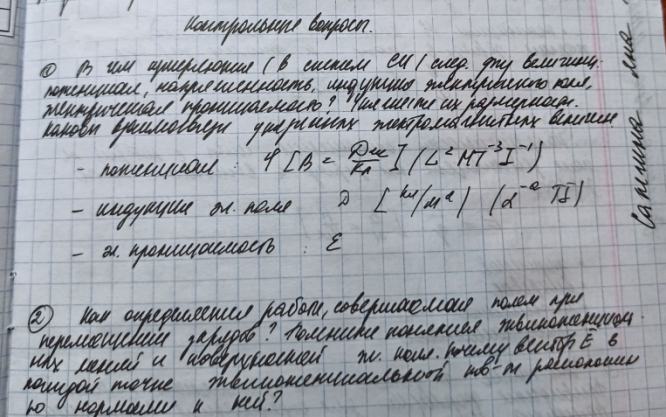 Контрольные вопросы.
① В чем измеряются (в систем СИ) след. физ величины:
потенциал, напряженность, индукция электрического поля,
электрическая проницаемость? их размерность.
Каковы электромагнитных величин
- потенциал : φ [В = Дж/Кл] (L² M T⁻³ I⁻¹)
- индукция эл. поле D [Кл/м²] (L⁻² T I)
- эл. проницаемость : Е
② Как определяется работа, совершаемая полем при
перемещении зарядов? понятия эквипотенциаль-
ных линий и поверхностей эл. поля. почему вектор Е в
каждой точке эквипотенциальной пов-ти расположен
по нормали к ней?